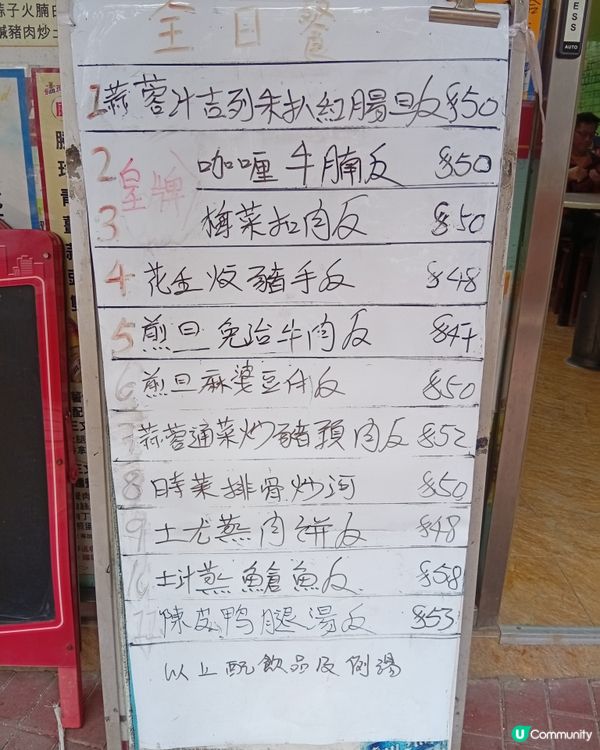 全日餐
1 蒜蓉汁吉列朱扒紅腸旦反 $50
2 咖喱牛腩反 $50
皇牌
3 梅菜扣肉反 $50
4 花生炆豬手反 $48
5 煎旦免治牛肉反 $47
6 煎旦麻婆豆付反 $50
7 蒜蓉通菜炒豬頸肉反 $52
8 時菜排骨炒河 $50
9 土尤蒸肉餅反 $48
10 士汁蒸鱠魚反 $58
11 陳皮鴨腿湯反 $53
以上配飲品及例湯
ESS
AUTO
U Community